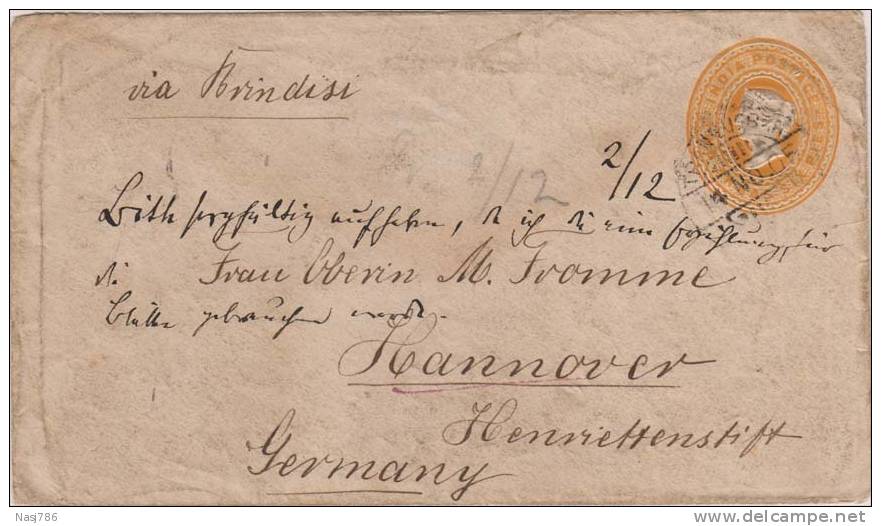 via Brindisi
INDIA POSTAGE
2/12
2/12
Bitte sorgfältig aufheben, da ich sie eine Erzählung, für
die
Frau Oberin M. Fromme
Blätter gebrauchen werde.
Hannover
Henriettenstift
Germany
Nasj786
www.delcampe.net